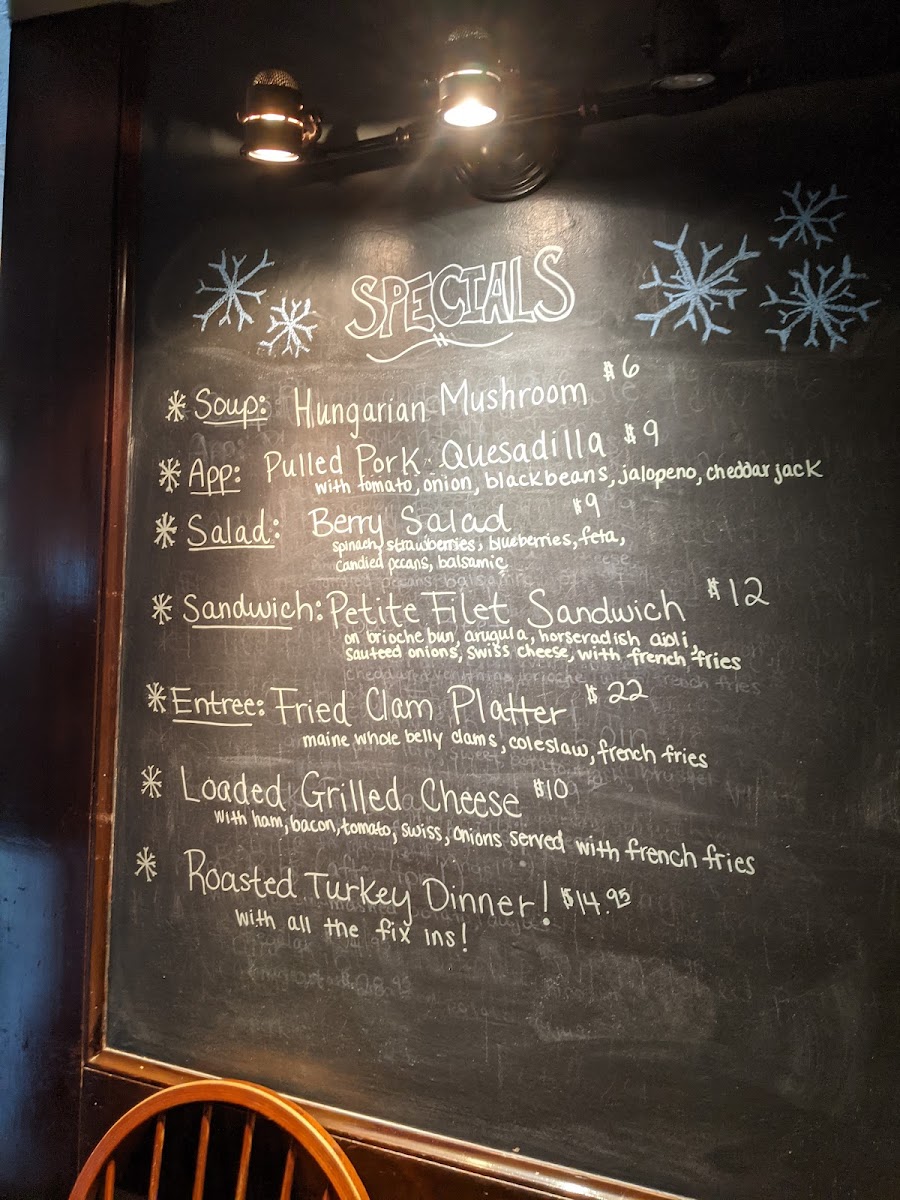 SPECIALS
Soup: Hungarian Mushroom $6
App: Pulled Pork Quesadilla $9
with tomato, onion, black beans, jalopeno, cheddar jack
Salad: Berry Salad $9
spinach, strawberries, blueberries, feta,
candied pecans, balsamic
Sandwich: Petite Filet Sandwich $12
on brioche bun, arugula, horseradish aioli,
sauteed onions, swiss cheese, with french fries
Entree: Fried Clam Platter $22
maine whole belly clams, coleslaw, french fries
Loaded Grilled Cheese $10
with ham, bacon, tomato, swiss, onions served with french fries
Roasted Turkey Dinner! $14.95
with all the fix ins!